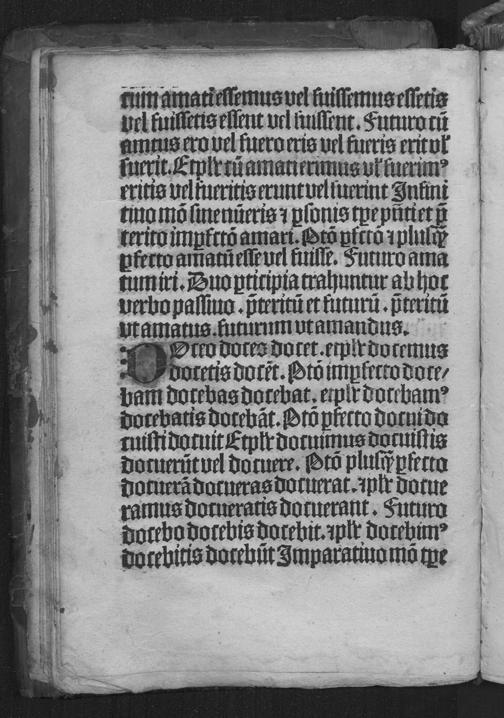 cum amati essemus vel fuissemus essetis
vel fuissetis essent vel fuissent. Futuro cū
amatus ero vel fuero eris vel fueris erit vl̓
fuerit. Etplr̓ cū amati erimus vl̓ fuerimꝰ
eritis vel fueritis erunt vel fuerint Infini
tiuo mō sine nūeris ⁊ ꝑsonis tꝑe pñti et p̄
terito imꝑfectō amari. Ptō ꝑfctō ⁊ plusq̄ꝫ
ꝑfecto amatū esse vel fuisse. Futuro ama
tum iri. Duo ꝑticipia trahuntur ab hoc
verbo passiuo. p̄teritū et futurū. p̄teritū
vt amatus. futurum vt amandus.
DOceo doces docet. etplr̓ docemus
docetis docēt. Ptō imꝑfecto doce/
bam docebas docebat. etplr̓ docebamꝰ
docebatis docebāt. Ptō ꝑfecto docui do
cuisti docuit Etplr̓ docuimus docuistis
docuerūt vel docuere. Ptō plusq̄ꝫ ꝑfecto
docuerā docueras docuerat. ⁊plr̓ docue
ramus docueratis docuerant. Futuro
docebo docebis docebit. ⁊plr̓ docebimꝰ
docebitis docebūt Imparatiuo mō tꝑe